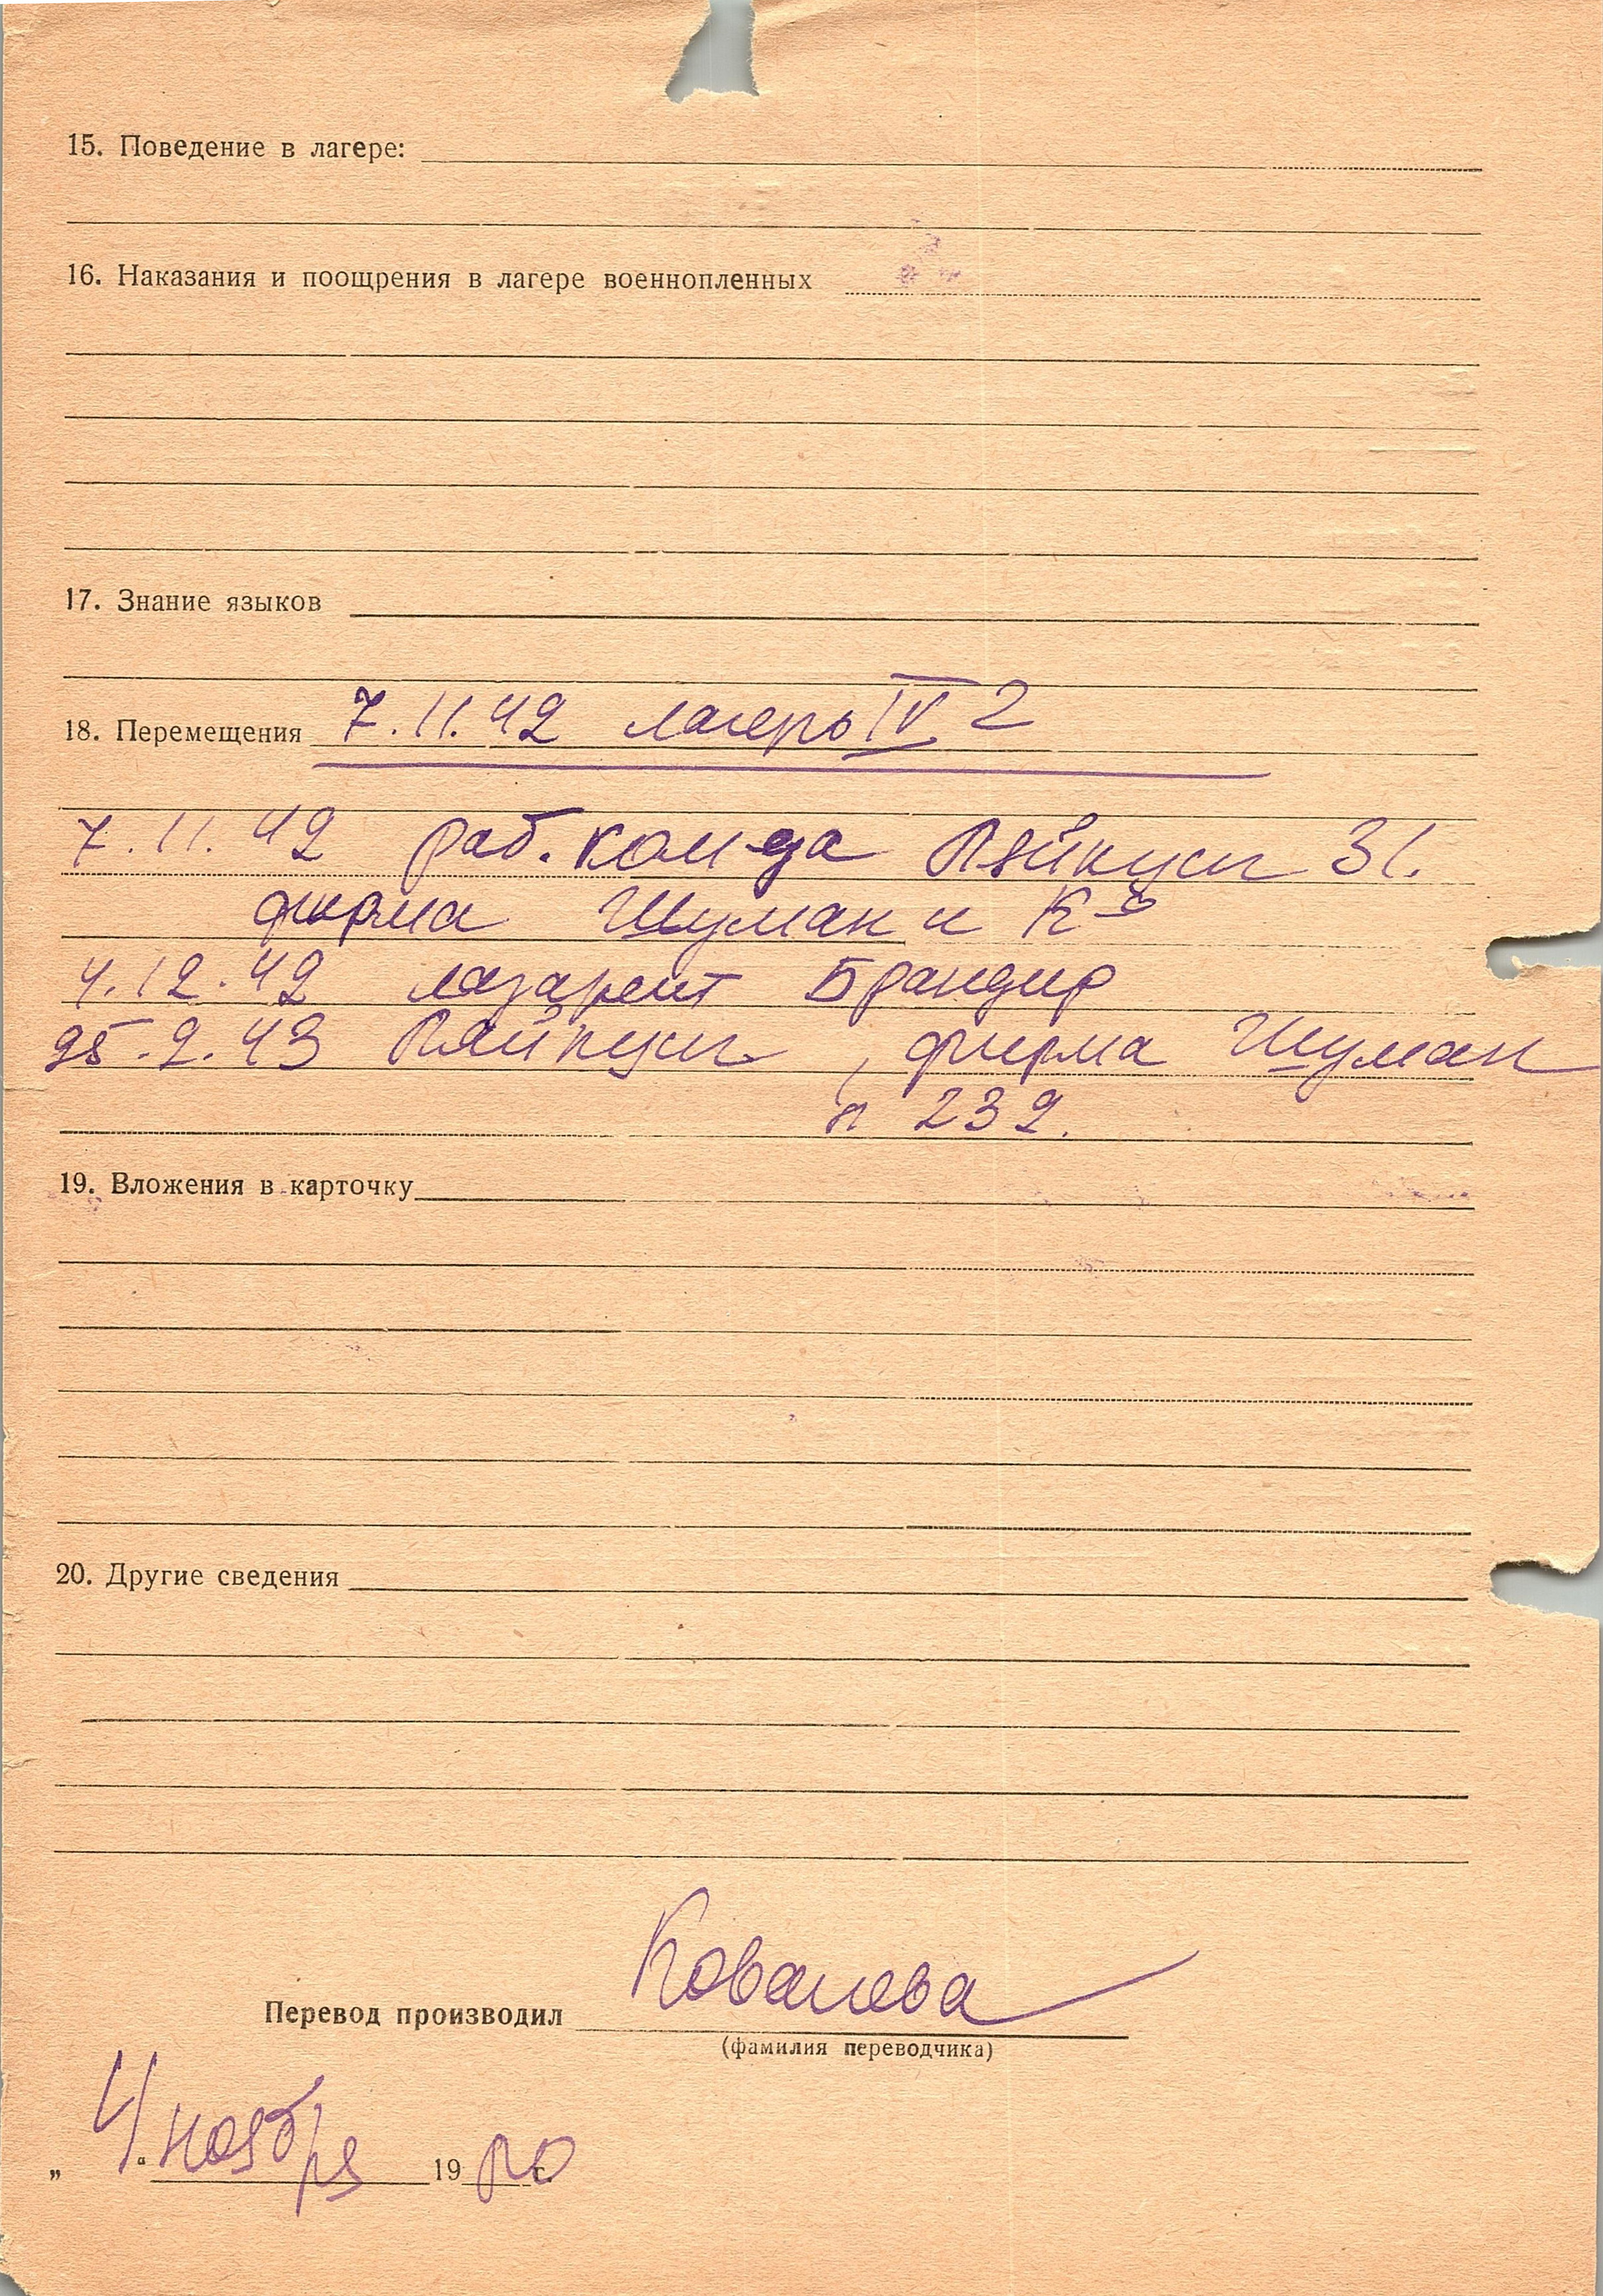 15. Поведение в лагере:
16. Наказания и поощрения в лагере военнопленных
17. Знание языков
18. Перемещения 7.11.42 лагерь IV 2
7.11.42 раб. ком-да 31.
фирма Шуман и К-о
4.12.42 лазарет
25.2.43 , фирма Шуман
232.
19. Вложения в карточку
20. Другие сведения
Перевод производил Ковалева
(фамилия переводчика)
„ 4. “ ноября 19 г.